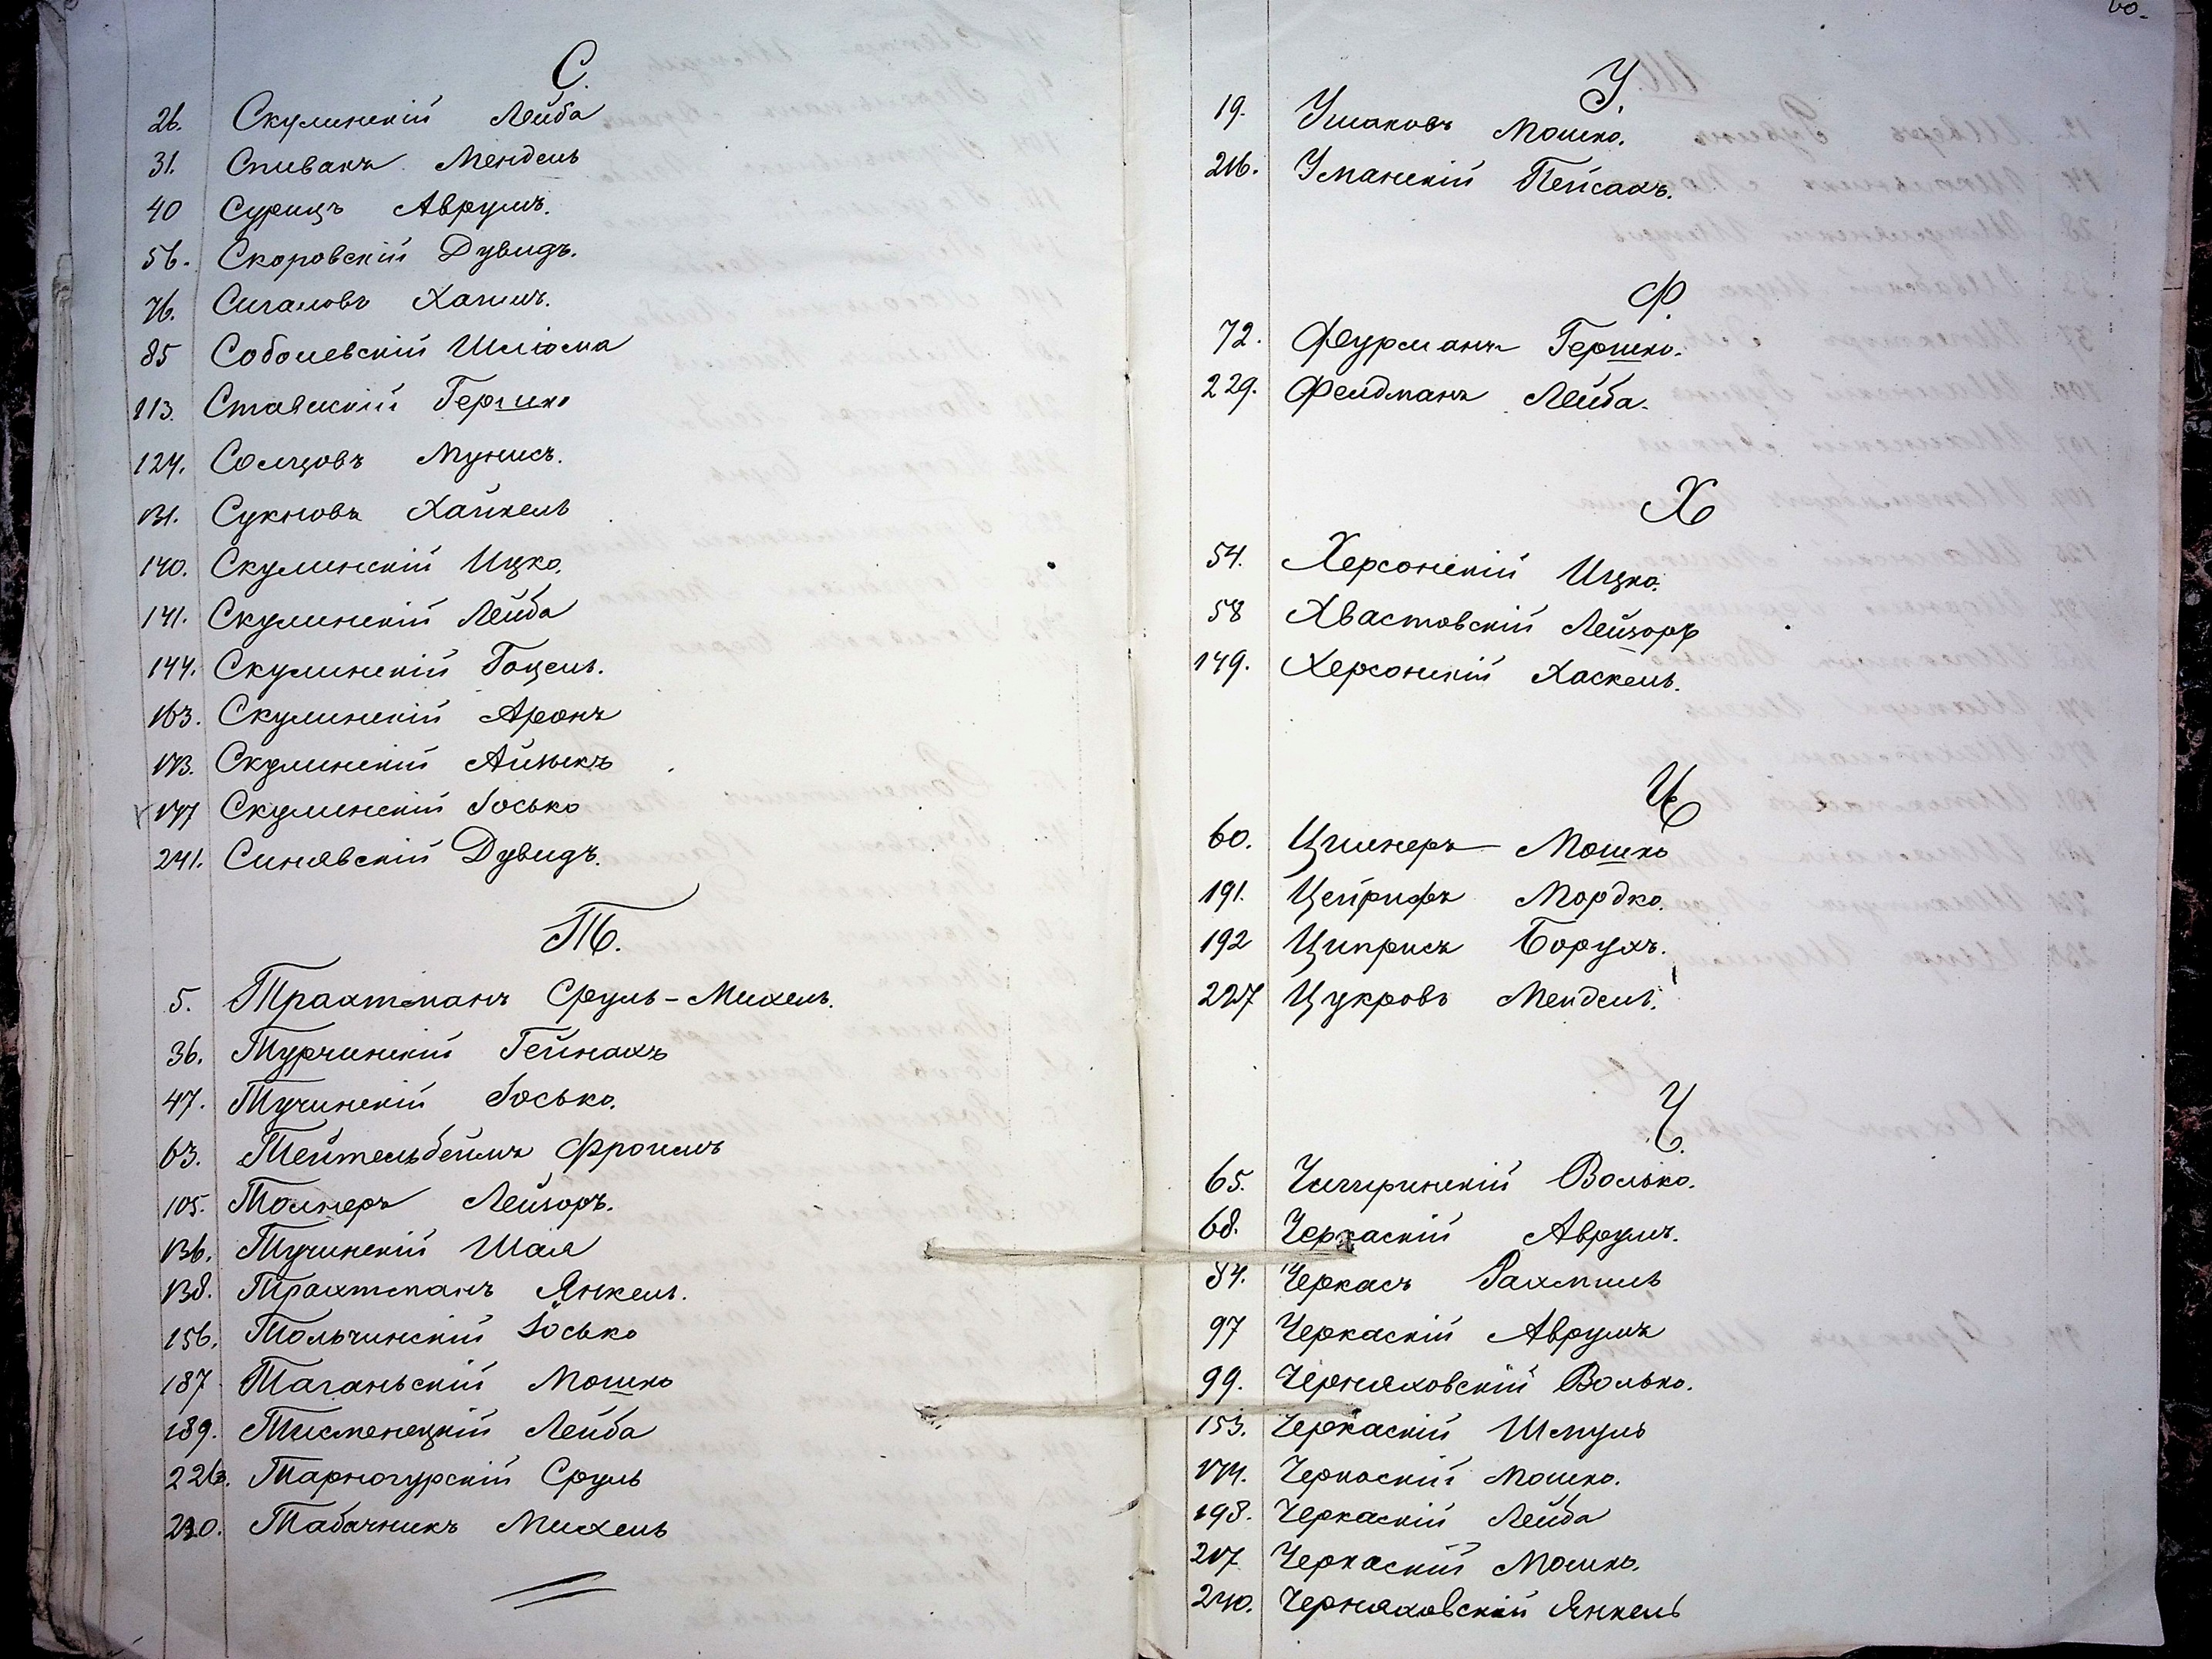 С.
26. Скулинскій Лейба
31. Спивакъ Мендель
40 Сурицъ Аврумъ.
56. Скоровскій Дувидъ.
76. Сигаловъ Хаимъ.
85 Соболевскій Шліома
113. Ставискій Гершко
124. Солцовъ Мунисъ.
131. Сукновъ Хайкель
140. Скулинскій Ицко.
141. Скулинскій Лейба
144. Скулинскій Гоцель.
163. Скулинскій Аронъ
173. Скулинскій Айзикъ
177 Скулинскій Іосько
241. Синявскій Дувидъ.
Т.
5. Трахтманъ Сруль-Михель.
36. Турчинскій Гейнахъ
47. Тучинскій Іосько.
63. Тейтельбеймъ Фроимъ
105. Толнеръ Лейзоръ.
136. Тучинскій Шая
138. Трахтманъ Янкель.
156. Тольчинскій Іосько
187 Таганьскій Мошко
189. Тисменецкій Лейба
226. Тарногурскій Сруль
230. Табачникъ Михель
60.
У.
19. Ушаковъ Мошко.
216. Уманскій Пейсахъ.
Ф.
72. Фурманъ Гершко.
229. Фельдманъ Лейба.
Х
54. Херсонскій Ицко.
58 Хвастовскій Лейзоръ
149. Херсонскій Хаскель.
Ц
60. Цимнеръ Мошко
191. Цейрифъ Мордко.
192 Циприсъ Борухъ.
227 Цукровъ Мендель.
Ч.
65. Чигиринскій Волько.
68. Черкаскій Аврумъ.
84. Черкасъ Рахмиль
97 Черкаскій Аврумъ
99. Черняховскій Волько.
153. Черкаскій Шмуль
174. Черкаскій Мошко.
198. Черкаскій Лейба
217 Черкаскій Мошко.
240. Черняховскій Янкель